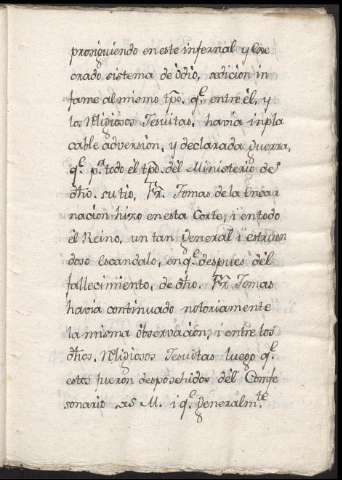 prosiguiendo en este infernal y exe
crado sistema de ódio, sedicion in
fame al mismo tpõ. q.ᵉ entre él, y
los Religiosos Jesuitas, havia inpla
cable adversion, y declarada guerra,
q.ᵉ p.ʳ todo el tpõ. dél Ministerio de
dhõ. su tio, Fr. Tomas de la Encar
nacion hizo en esta Corte, i en todo
él Reino, un tan general i estruen
doso escandalo, en q.ᵉ despues dél
fallecimiento, de dhõ. Fr. Tomas
havia continuado notoriamente
la misma observacion; i entre los
dhõs. Religiosos Jesuitas luego q.ᵉ
estos fueron desposehidos dél Confe
sonario M. i q.ᵉ generalm.ᵗᵉ